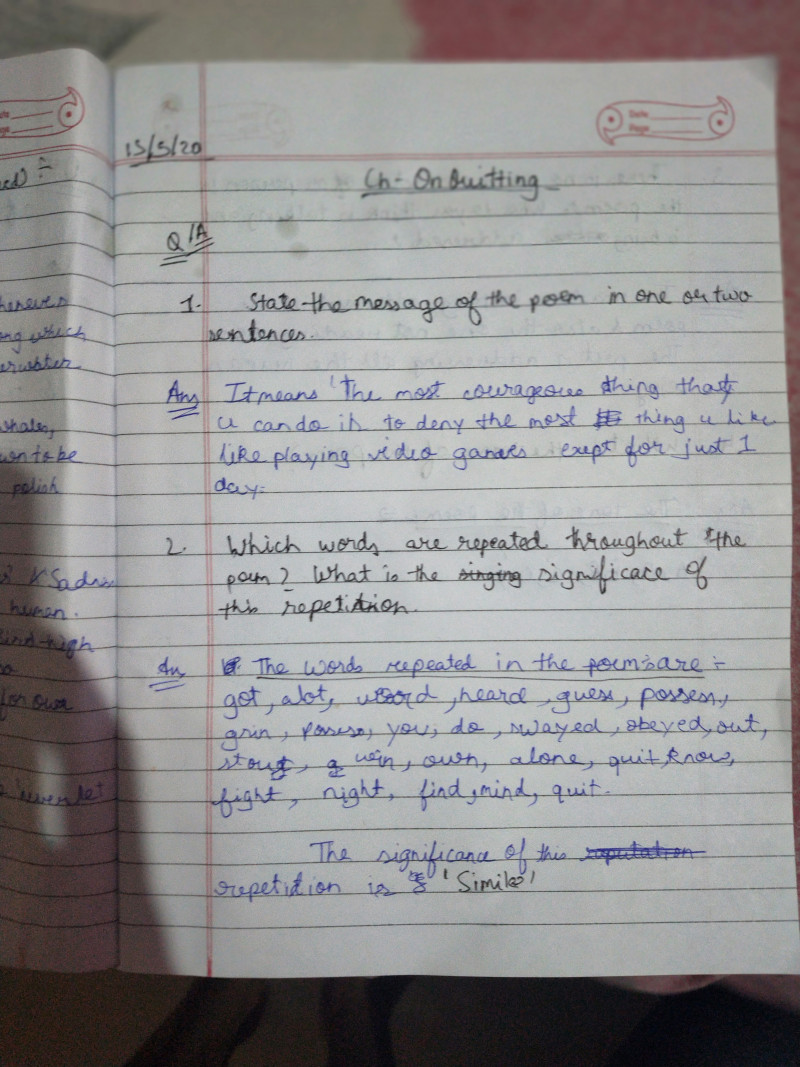 Date
Page
15/5/20
Ch- On Quitting
Q/A
1. State the message of the poem in one or two
sentences.
Ans It means 'The most courageous thing that
u can do is to deny the most thing u like
like playing video games exept for just 1
day.
2. Which words are repeated throughout the
poem? What is the singing significace of
this repetition.
Ans The words repeated in the poem are :-
got, alot, word, heard, guess, possess,
grin, possess, you, do, swayed, obeyed, out,
stout, win, own, alone, quit, know,
fight, night, find, mind, quit.
The significance of this reputation
repetition is 'Simile'
ed) :-
which
water
whales,
polish
human.
for our
never let